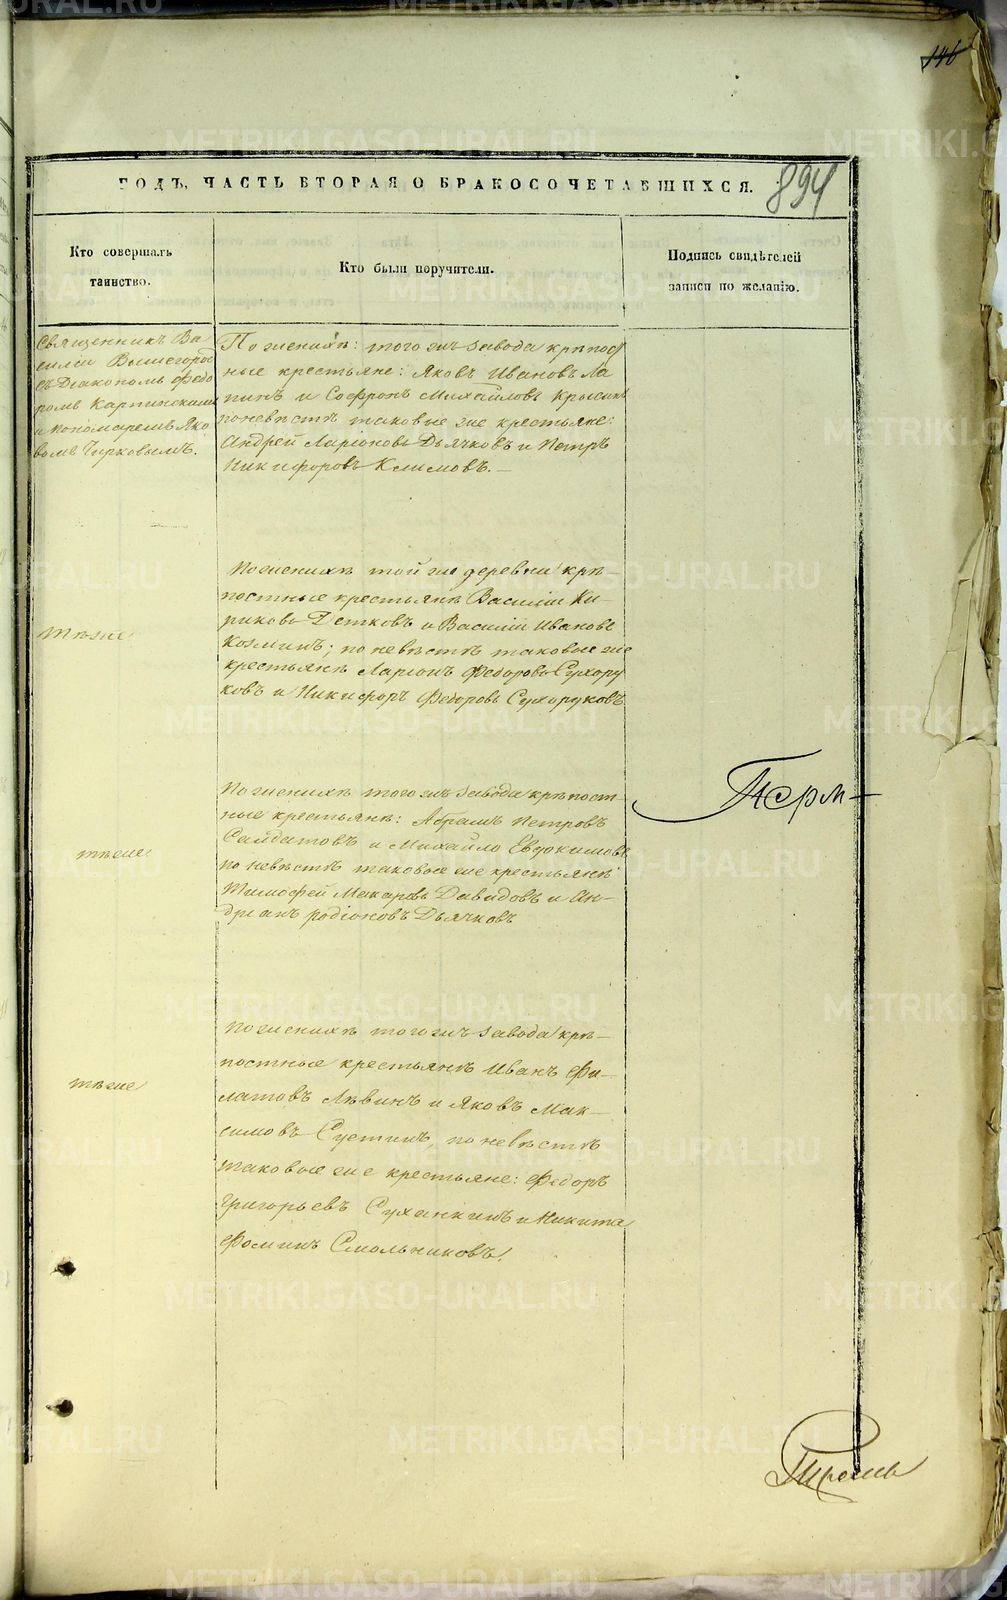 146
894
ГОДЪ, ЧАСТЬ ВТОРАЯ О БРАКОСОЧЕТАВШИХСЯ.
Кто совершалъ
таинство.
Кто были поручители.
Подпись свидѣтелей
записи по желанію.
Священникъ Ва
силій Вышегород
съ Діакономъ Ѳедо
ромъ Карпинскимъ
и пономаремъ Яко
вомъ Чирковымъ.
По женихѣ: того жъ завода крѣпос
ные крестьяне: Яковъ Ивановъ Ла
пинъ и Софронъ Михайловъ Крысинъ
по невѣстѣ таковые же крестьяне:
Андрей Ларіоновъ Дьячковъ и Петръ
Никифоровъ Климовъ. —
тѣже
По женихѣ той же деревни крѣ-
постные крестьянѣ Василій Ки-
риковъ Детковъ и Василій Ивановъ
Козминъ; по невѣстѣ таковые же
крестьянѣ Ларіонъ Ѳедоровъ Сухору
ковъ и Никифоръ Ѳедоровъ Сухоруковъ
тѣже
По женихѣ того жъ завода крѣпост
ные крестьянѣ: Абрамъ Петровъ
Салдатовъ и Михайло Евдокимовъ
по невѣстѣ таковые же крестьянѣ
Тимофей Макаровъ Давыдовъ и Ан-
дріанъ родіоновъ Дьячковъ
Перм-
тѣже
По женихѣ того жъ завода крѣ-
постные крестьянѣ Иванъ Фи-
латовъ Лѣвинъ и Яковъ Мак-
симовъ Сустинъ, по невѣстѣ
таковые же крестьяне: Ѳедоръ
Григорьевъ Суханкинъ и Никита
Фоминъ Смольниковъ.
METRIKI.GASO-URAL.RU